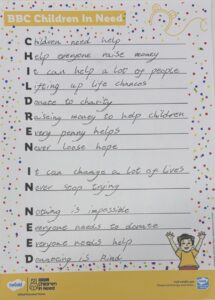 BBC Children In Need
Children need help
Help everyone raise money
It can help a lot of people
Lifting up life chances
Donate to charity
Raising money to help children
Every penny helps
Never loose hope
It can change a lot of lives
Never stop trying
Nothing is impossible
Everyone needs to donate
Everyone needs help
Donating is Kind
twinkl
BBC
Children
in Need